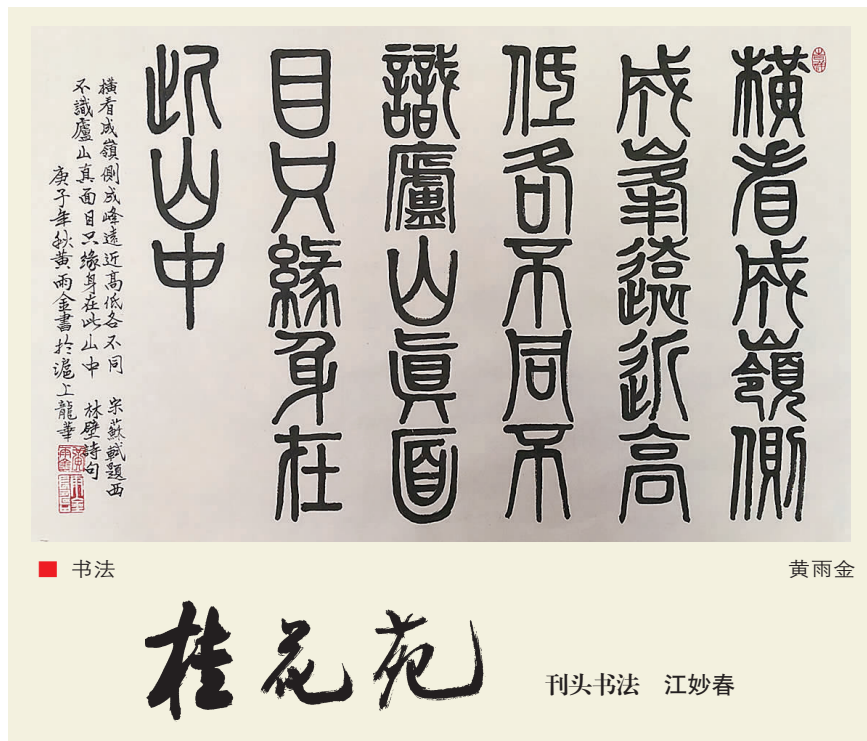 橫看成嶺側
成峯遠近高
低各不同不
識廬山眞面
目只緣身在
此山中
橫看成嶺側成峰遠近高低各不同 宋蘇軾題西
不識廬山真面目只緣身在此山中 林壁詩句
庚子年秋黃雨金書於滬上龍華
书法
黄雨金
桂花苑
刊头书法 江妙春